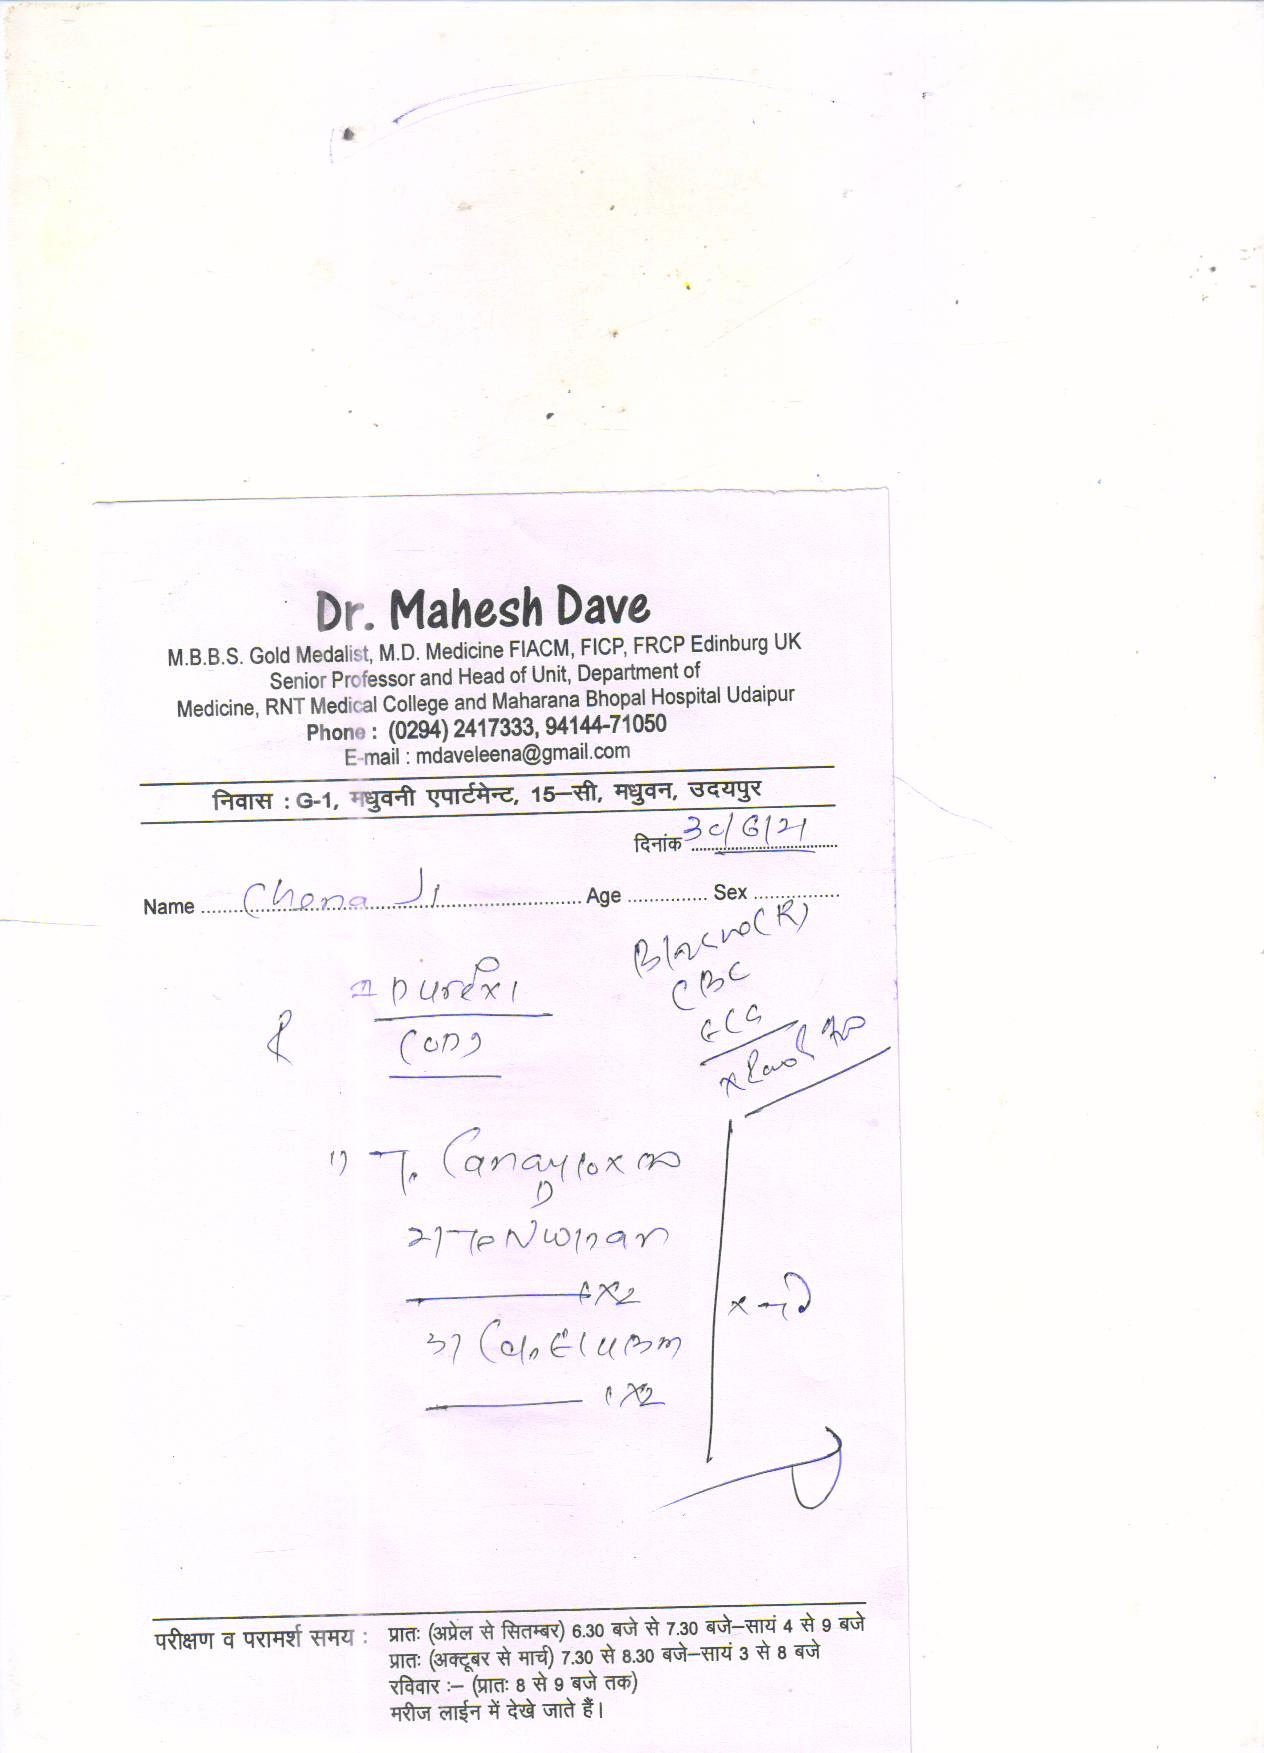 Dr. Mahesh Dave
M.B.B.S. Gold Medalist, M.D. Medicine FIACM, FICP, FRCP Edinburg UK
Senior Professor and Head of Unit, Department of
Medicine, RNT Medical College and Maharana Bhopal Hospital Udaipur
Phone : (0294) 2417333, 94144-71050
E-mail : mdaveleena@gmail.com
निवास : G-1, मधुवनी एपार्टमेन्ट, 15–सी, मधुवन, उदयपुर
दिनांक 30/6/21
Name Chena Ji Age Sex
CBC
ECG
1) T.
2) T.
1x2
3) Cap.
1x2
परीक्षण व परामर्श समय : प्रातः (अप्रेल से सितम्बर) 6.30 बजे से 7.30 बजे–सायं 4 से 9 बजे
प्रातः (अक्टूबर से मार्च) 7.30 से 8.30 बजे–सायं 3 से 8 बजे
रविवार :– (प्रातः 8 से 9 बजे तक)
मरीज लाईन में देखे जाते हैं।